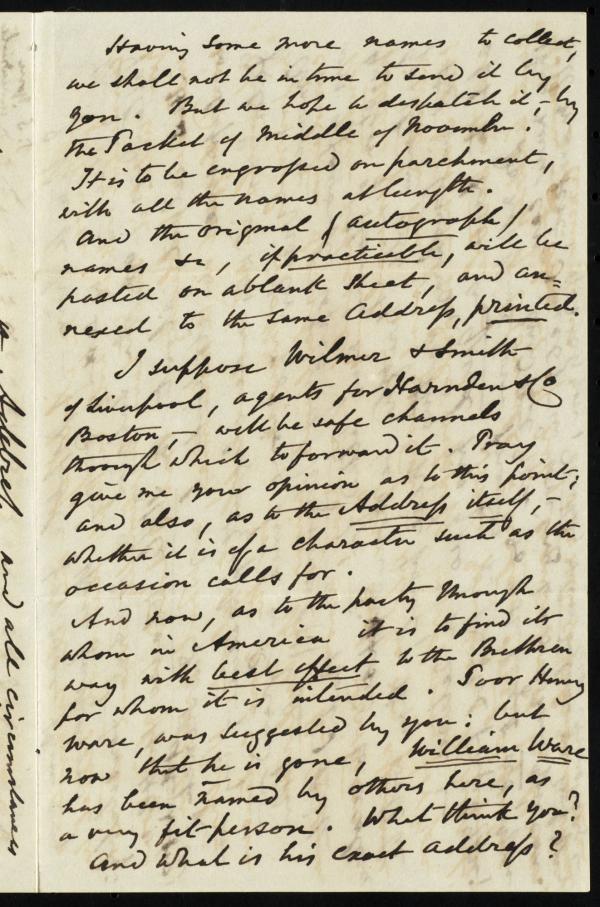 Having some more names to collect,
we shall not be in time to send it by
you. But we hope to despatch it, – by
the Packet of middle of November.
It is to be engrossed on parchment,
with all the names at length.
And the original (autograph)
names &c, if practicable, will be
pasted on a blank sheet, and an=
nexed to the same Address, printed.
I suppose Wilmer & Smith
of Liverpool, agents for Harnden & Co
Boston, – will be safe channels
through which to forward it. Pray
give me your opinion as to this point;
and also, as to the Address itself, –
whether it is of a character such as the
occasion calls for.
And now, as to the party through
whom in America it is to find its
way with best effect to the Brethren
for whom it is intended. Poor Henry
Ware, was suggested by you: but
now that he is gone, William Ware
has been named by others here, as
a very fit person. What think you?
And what is his exact address?
and all circumstances